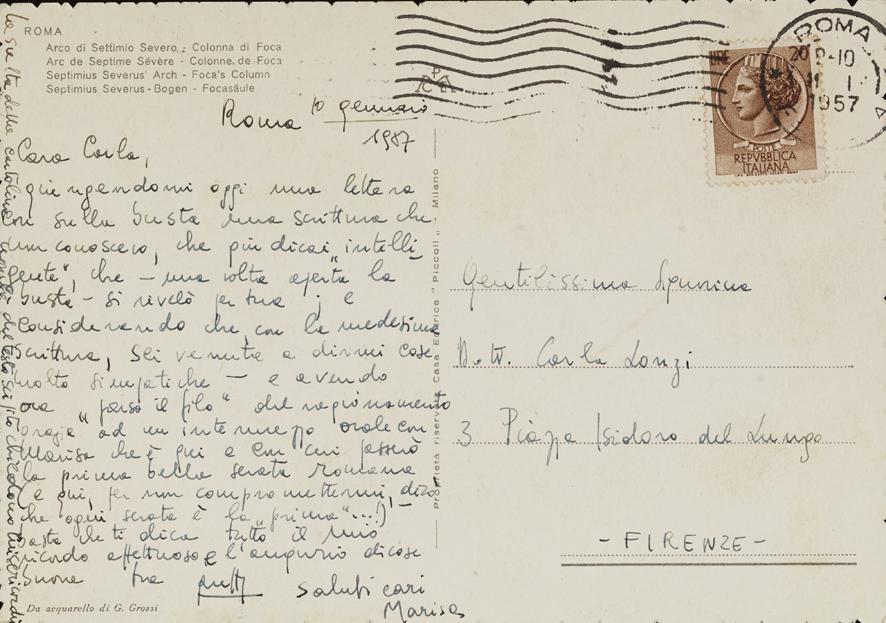 ROMA
Arco di Settimio Severo. - Colonna di Foca
Arc de Septime Sévère - Colonne de Foca
Septimius Severus' Arch - Foca's Column
Septimius Severus-Bogen - Focasäule
Roma 10 gennaio
1957
Cara Carla,
giungendomi oggi una lettera
con sulla busta una scrittura che
non conoscevo, che più dicai "intelli-
gente", che — una volta aperta la
busta — si rivelò per tua ; e
considerando che, con la medesima
scrittura, sei venuta a dirmi cose
molto simpatiche — e avendo
ora "perso il filo" del ragionamento
grazie ad un intermezzo orale con
Marisa che è qui e con cui passerò
la prima bella serata romana
(e qui, per non compromettermi, dico
che ogni serata è la "prima"...!) —
basta che ti dica tutto il mio
ricordo affettuoso e l'augurio di cose
buone tua
saluti cari
Marisa
Da acquarello di G. Grossi
La scelta della cartolina
Proprietà riservata Casa Editrice "Piccoli" Milano
ROMA
9-10
1
1957
LIRE 20
POSTE
REPVBBLICA
ITALIANA
Gentilissima Signorina
Dott. Carla Lonzi
3 Piazza Isidoro del Lungo
- FIRENZE -